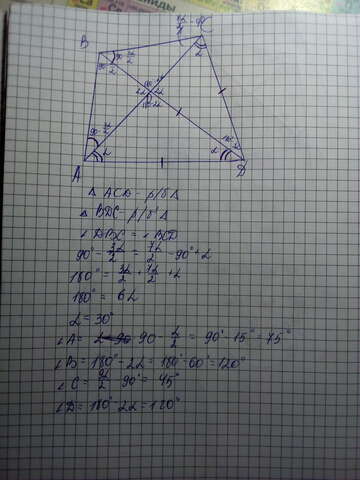 B
A
D
△ ACD - р/б △
△ BDC - р/б △
∠DBC = ∠BCD
90° - 3α/2 = 7α/2 - 90° + α
180° = 3α/2 + 7α/2 + α
180° = 6α
α = 30°
∠A = 90 - α/2 = 90° - 15° = 75°
∠B = 180° - 2α = 180° - 60° = 120°
∠C = 9α/2 - 90° = 45°
∠D = 180° - 2α = 120°